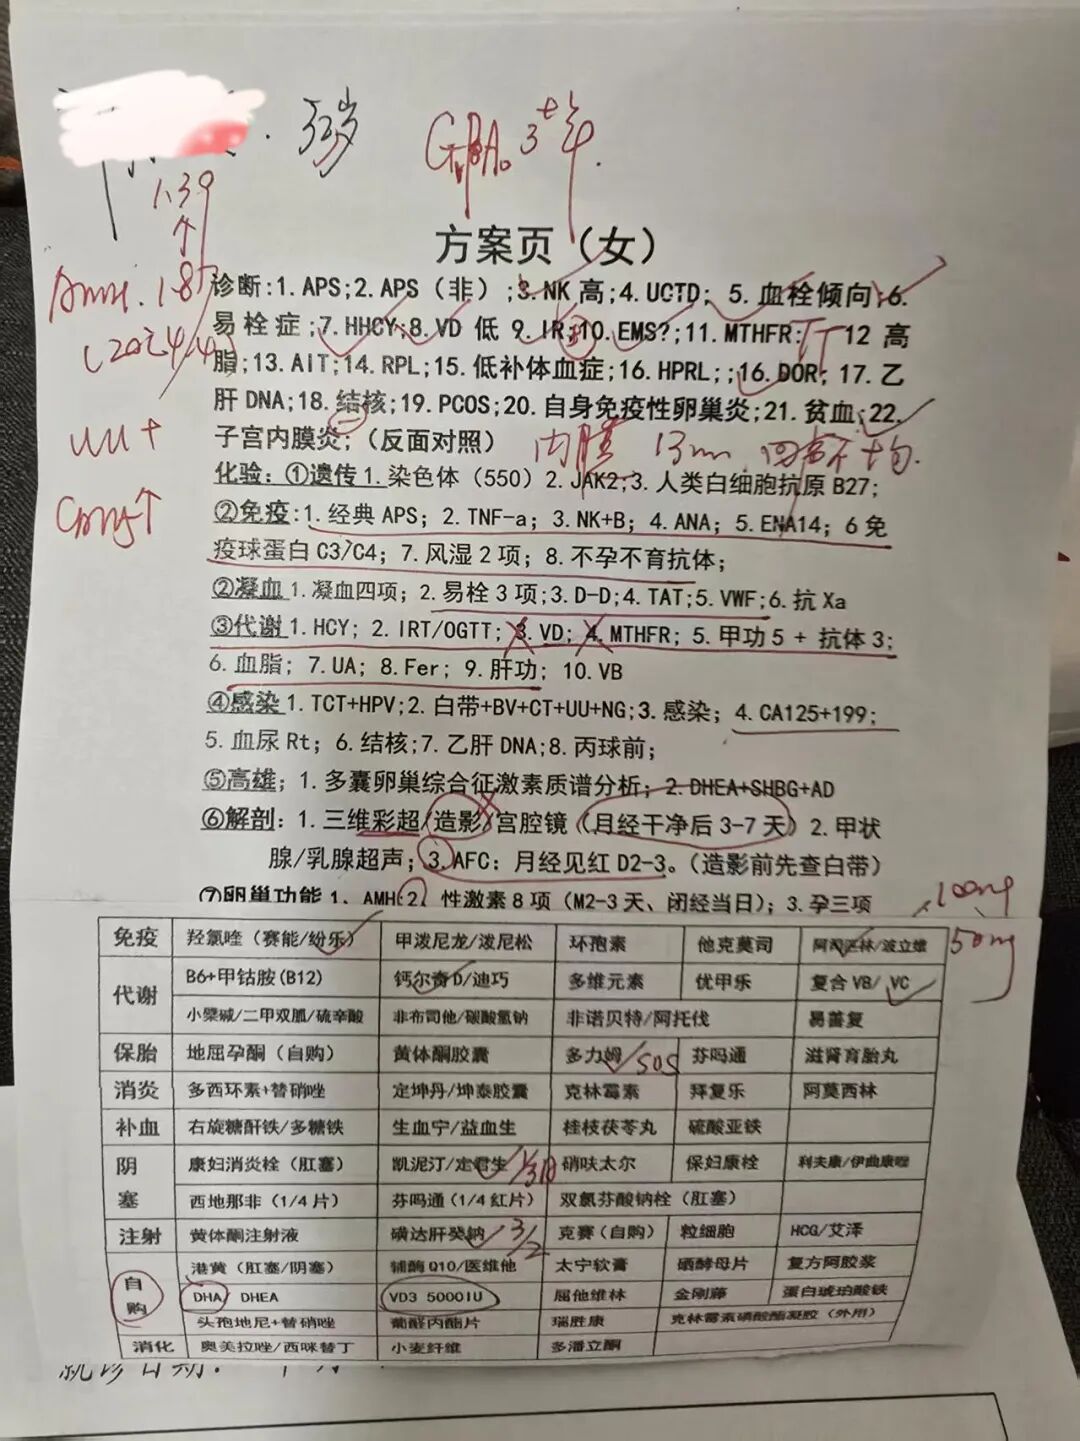 33岁 G1P1A0 3+年
1.39
↑
AMH. 1.87
UU +
方案页（女）
诊断:1. APS;2. APS（非）;3. NK 高;4. UCTD; 5. 血栓倾向;6.
易栓症;7. HHCY;8. VD 低 9. IR;10. EMS?;11. MTHFR: TT 12 高
脂;13. AIT;14. RPL;15. 低补体血症;16. HPRL;;16. DOR; 17. 乙
肝 DNA;18. 结核;19. PCOS;20. 自身免疫性卵巢炎;21. 贫血;22.
子宫内膜炎;（反面对照） 内膜 13mm 回声不均.
化验:①遗传 1. 染色体（550）2. JAK2;3. 人类白细胞抗原 B27;
②免疫:1. 经典 APS; 2. TNF-a; 3. NK+B; 4. ANA; 5. ENA14; 6 免
疫球蛋白 C3/C4; 7. 风湿 2 项; 8. 不孕不育抗体;
②凝血 1. 凝血四项; 2. 易栓 3 项;3. D-D;4. TAT;5. VWF;6. 抗 Xa
③代谢 1. HCY; 2. IRT/OGTT; 3. VD; 4. MTHFR; 5. 甲功 5 + 抗体 3;
6. 血脂; 7. UA; 8. Fer; 9. 肝功; 10. VB
④感染 1. TCT+HPV;2. 白带+BV+CT+UU+NG;3. 感染; 4. CA125+199;
5. 血尿 Rt; 6. 结核;7. 乙肝 DNA;8. 丙球前;
⑤高雄; 1. 多囊卵巢综合征激素质谱分析; 2. DHEA+SHBG+AD
⑥解剖: 1. 三维彩超/造影/宫腔镜（月经干净后 3-7 天）2. 甲状
腺/乳腺超声; 3. AFC: 月经见红 D2-3。（造影前先查白带）
⑦卵巢功能 1. AMH;2. 性激素 8 项（M2-3 天、闭经当日）; 3. 孕三项
100mg
50mg
免疫 羟氯喹（赛能/纷乐） 甲泼尼龙/泼尼松 环孢素 他克莫司 阿司匹林/波立维
代谢 B6+甲钴胺(B12) 钙尔奇D/迪巧 多维元素 优甲乐 复合 VB/ VC
小檗碱/二甲双胍/硫辛酸 非布司他/碳酸氢钠 非诺贝特/阿托伐 易善复
保胎 地屈孕酮（自购） 黄体酮胶囊 多力姆 SOS 芬吗通 滋肾育胎丸
消炎 多西环素+替硝唑 定坤丹/坤泰胶囊 克林霉素 拜复乐 阿莫西林
补血 右旋糖酐铁/多糖铁 生血宁/益血生 桂枝茯苓丸 硫酸亚铁
阴塞 康妇消炎栓（肛塞） 凯泥汀/定君生 硝呋太尔 保妇康栓 利夫康/伊曲康唑
西地那非（1/4 片） 芬吗通（1/4 红片） 双氯芬酸钠栓（肛塞）
注射 黄体酮注射液 磺达肝癸钠 3/2 克赛（自购） 粒细胞 HCG/艾泽
自购 港黄（肛塞/阴塞） 辅酶 Q10/医维他 太宁软膏 硒酵母片 复方阿胶浆
DHA/ DHEA VD3 5000IU 屈他维林 金刚藤 蛋白琥珀酸铁
头孢地尼+替硝唑 葡醛内酯片 瑞胜康 克林霉素磷酸酯凝胶（外用）
消化 奥美拉唑/西咪替丁 小麦纤维 多潘立酮